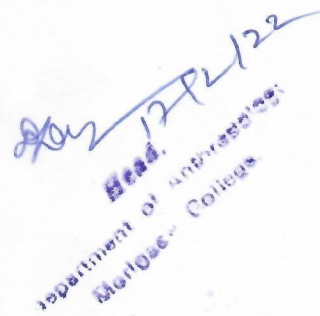 12/2/22
Head,
Department of Anthropology
College.